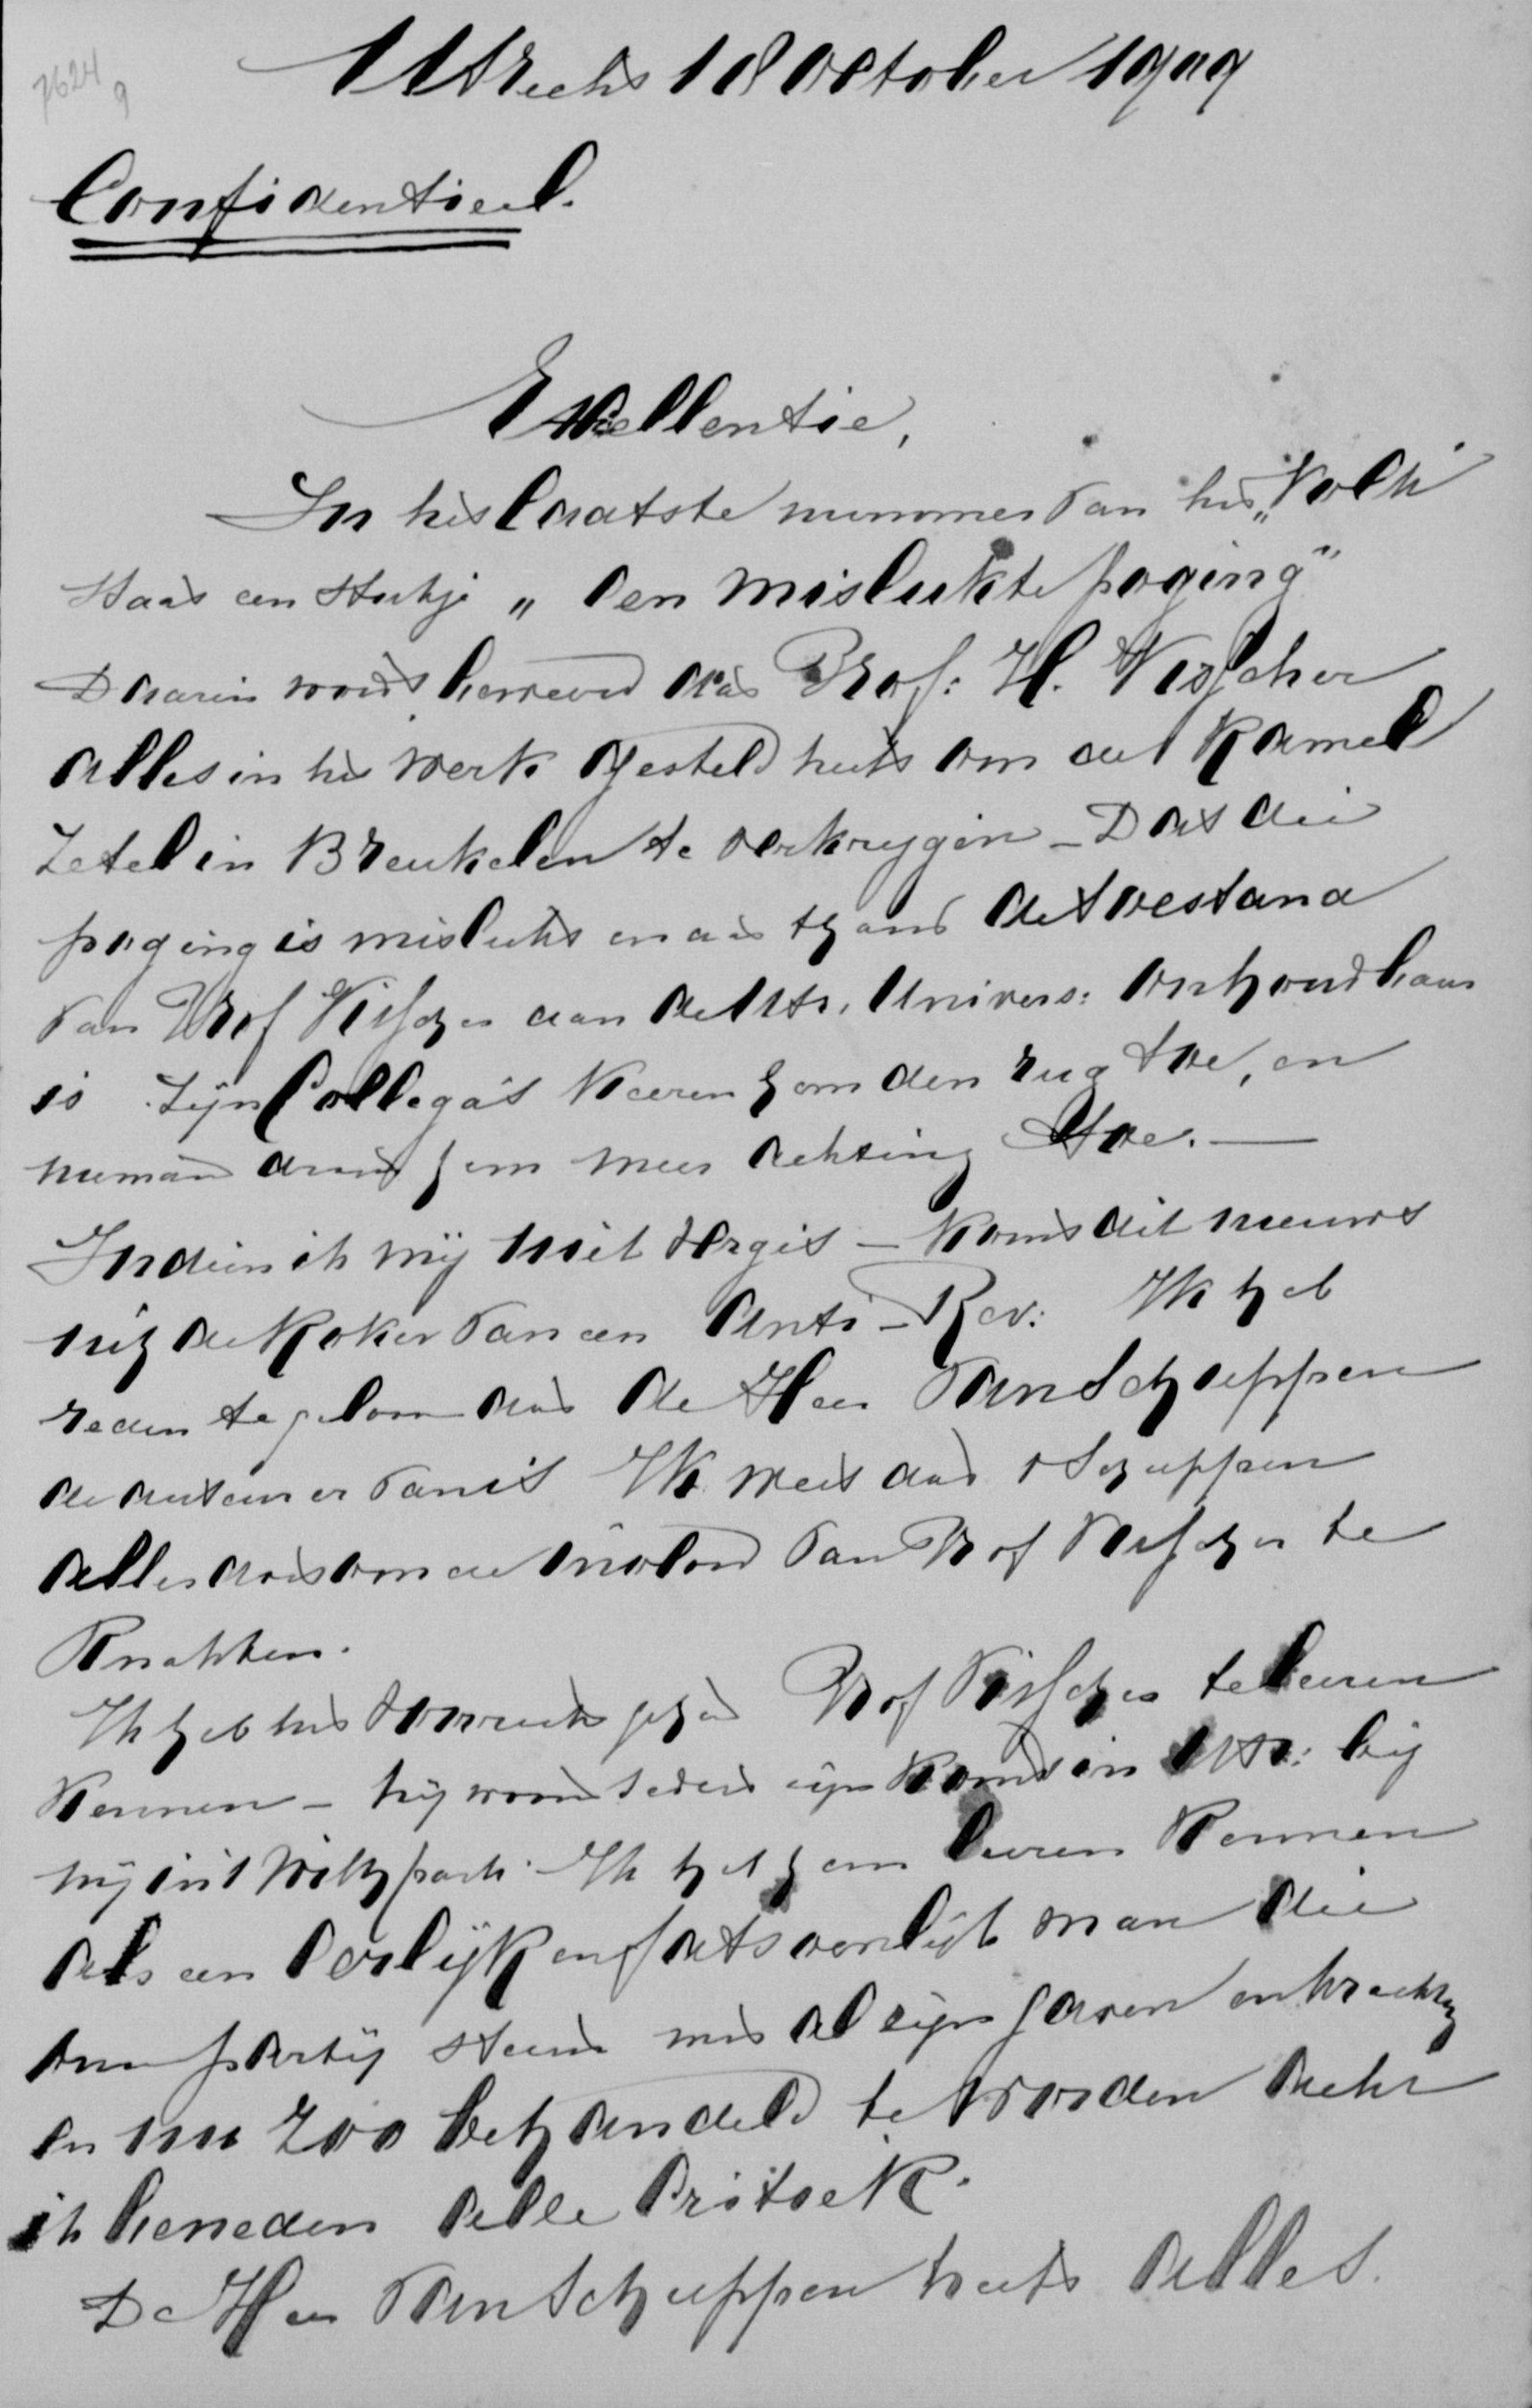 7624
9
Utrecht 18 October 1909
Confidentieel.
Excellentie,
In het laatste nummer van het „Volk"
staat een stukje „een mislukte poging"
Daarin wordt beweerd dat Prof: H. Visscher
alles in het werk gesteld heeft om de Kamer
Zetel in Breukelen te verkrygen – Dat die
poging is mislukt en dat thans de toestand
van Prof Visscher aan de Utr. Univers: onhoudbaar
is Zijn Collega's keeren hem den rug toe, en
niemand draagt hem meer achting toe. —
Indien ik mij niet vergis – komt dit nieuws
uit de koker van een Anti-Rev: Ik heb
reden te gelooven dat de Heer van Schuppen
de auteur er van is Ik weet dat v Schuppen
alles doet om de invloed van Prof Visscher te
knakken.
Ik heb het voorrecht gehad Prof Visscher te leeren
kennen – hij woont sedert zijn komst in Utr: bij
mij in 't Wilhpark. Ik heb hem leeren kennen
als een eerlijk en fatsoenlijk man die
onze partij steunt met al zijn gaven en krachten
en nu zoo behandeld te worden acht
ik beneden alle critiek.
De Heer van Schuppen heeft alles